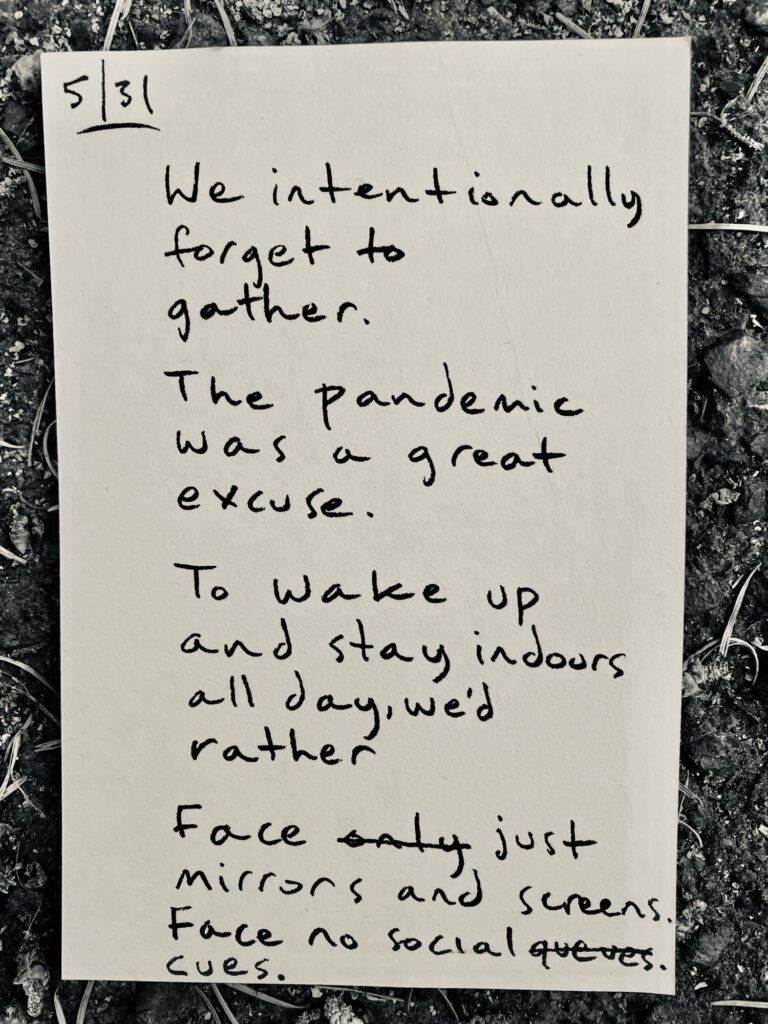 5/31
We intentionally
forget to
gather.
The pandemic
was a great
excuse.
To wake up
and stay indoors
all day, we'd
rather
Face only just
mirrors and screens.
Face no social queues.
cues.